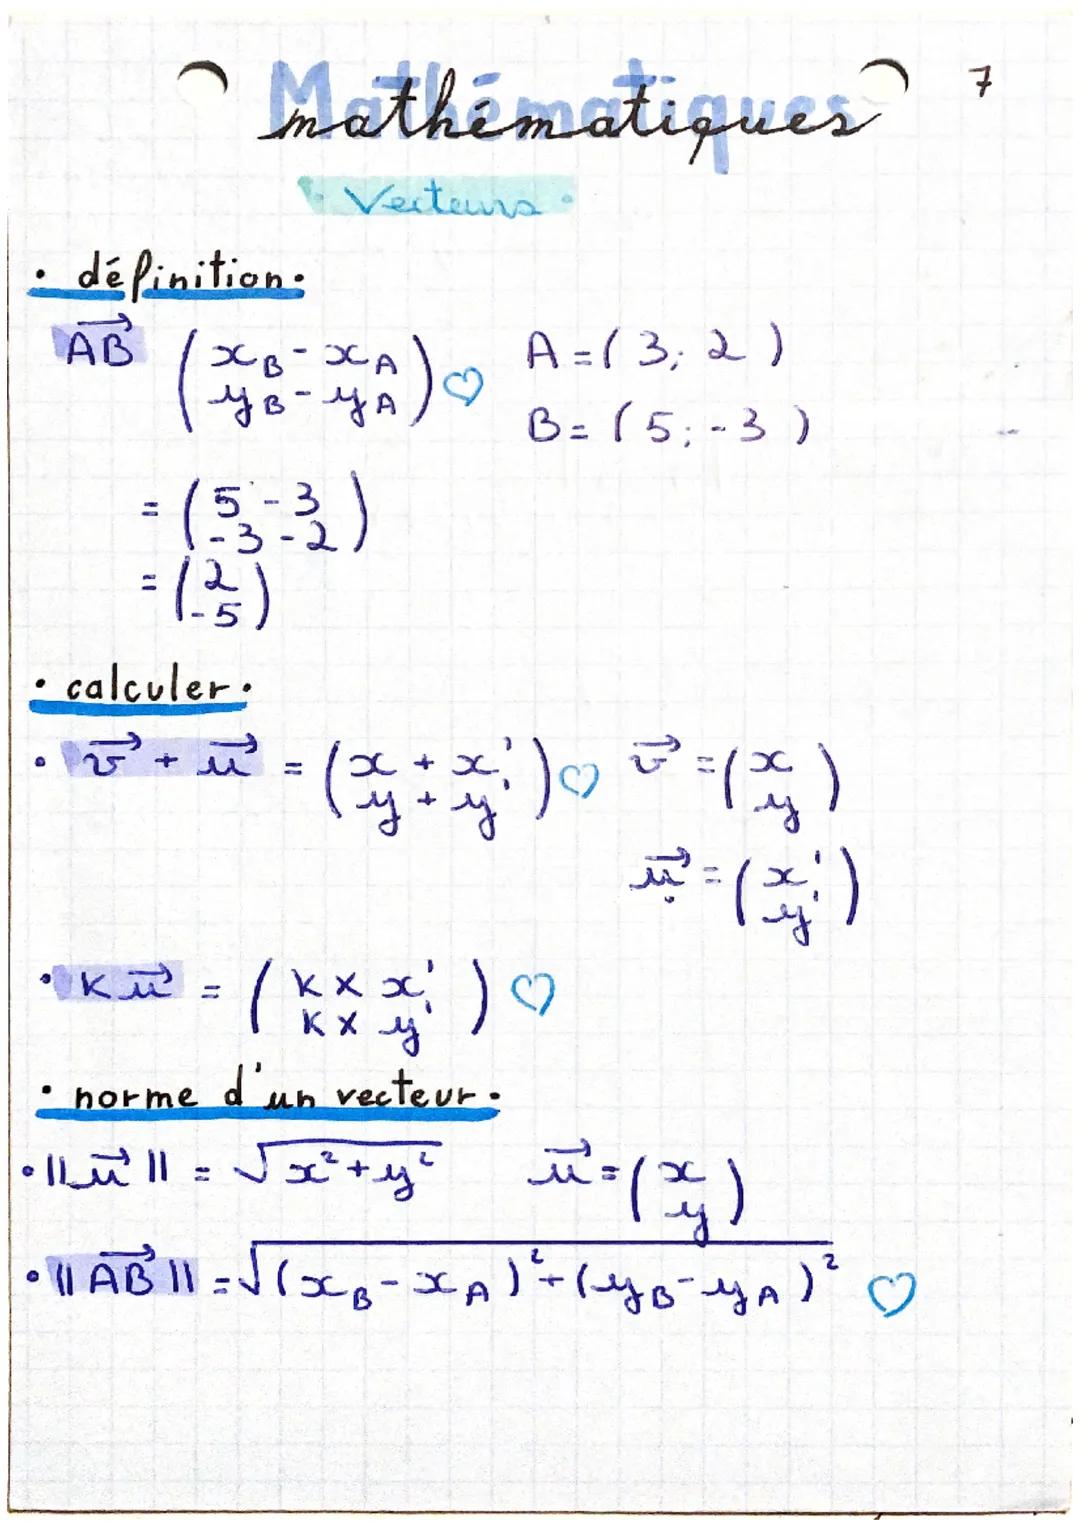 7
Mathématiques
mathématiques
• Vecteurs •
• définition •
AB⃗ (x_B - x_A / y_B - y_A) ♡ A = (3; 2)
B = (5; -3)
= (5 - 3 / -3 - 2)
= (2 / -5)
• calculer •
• v⃗ + u⃗ = (x + x' / y + y') ♡ v⃗ = (x / y)
u⃗ = (x' / y')
• K u⃗ = (K × x' / K × y') ♡
• norme d'un vecteur •
• ||u⃗|| = √(x² + y²) u⃗ = (x / y)
• ||AB⃗|| = √((x_B - x_A)² + (y_B - y_A)²) ♡